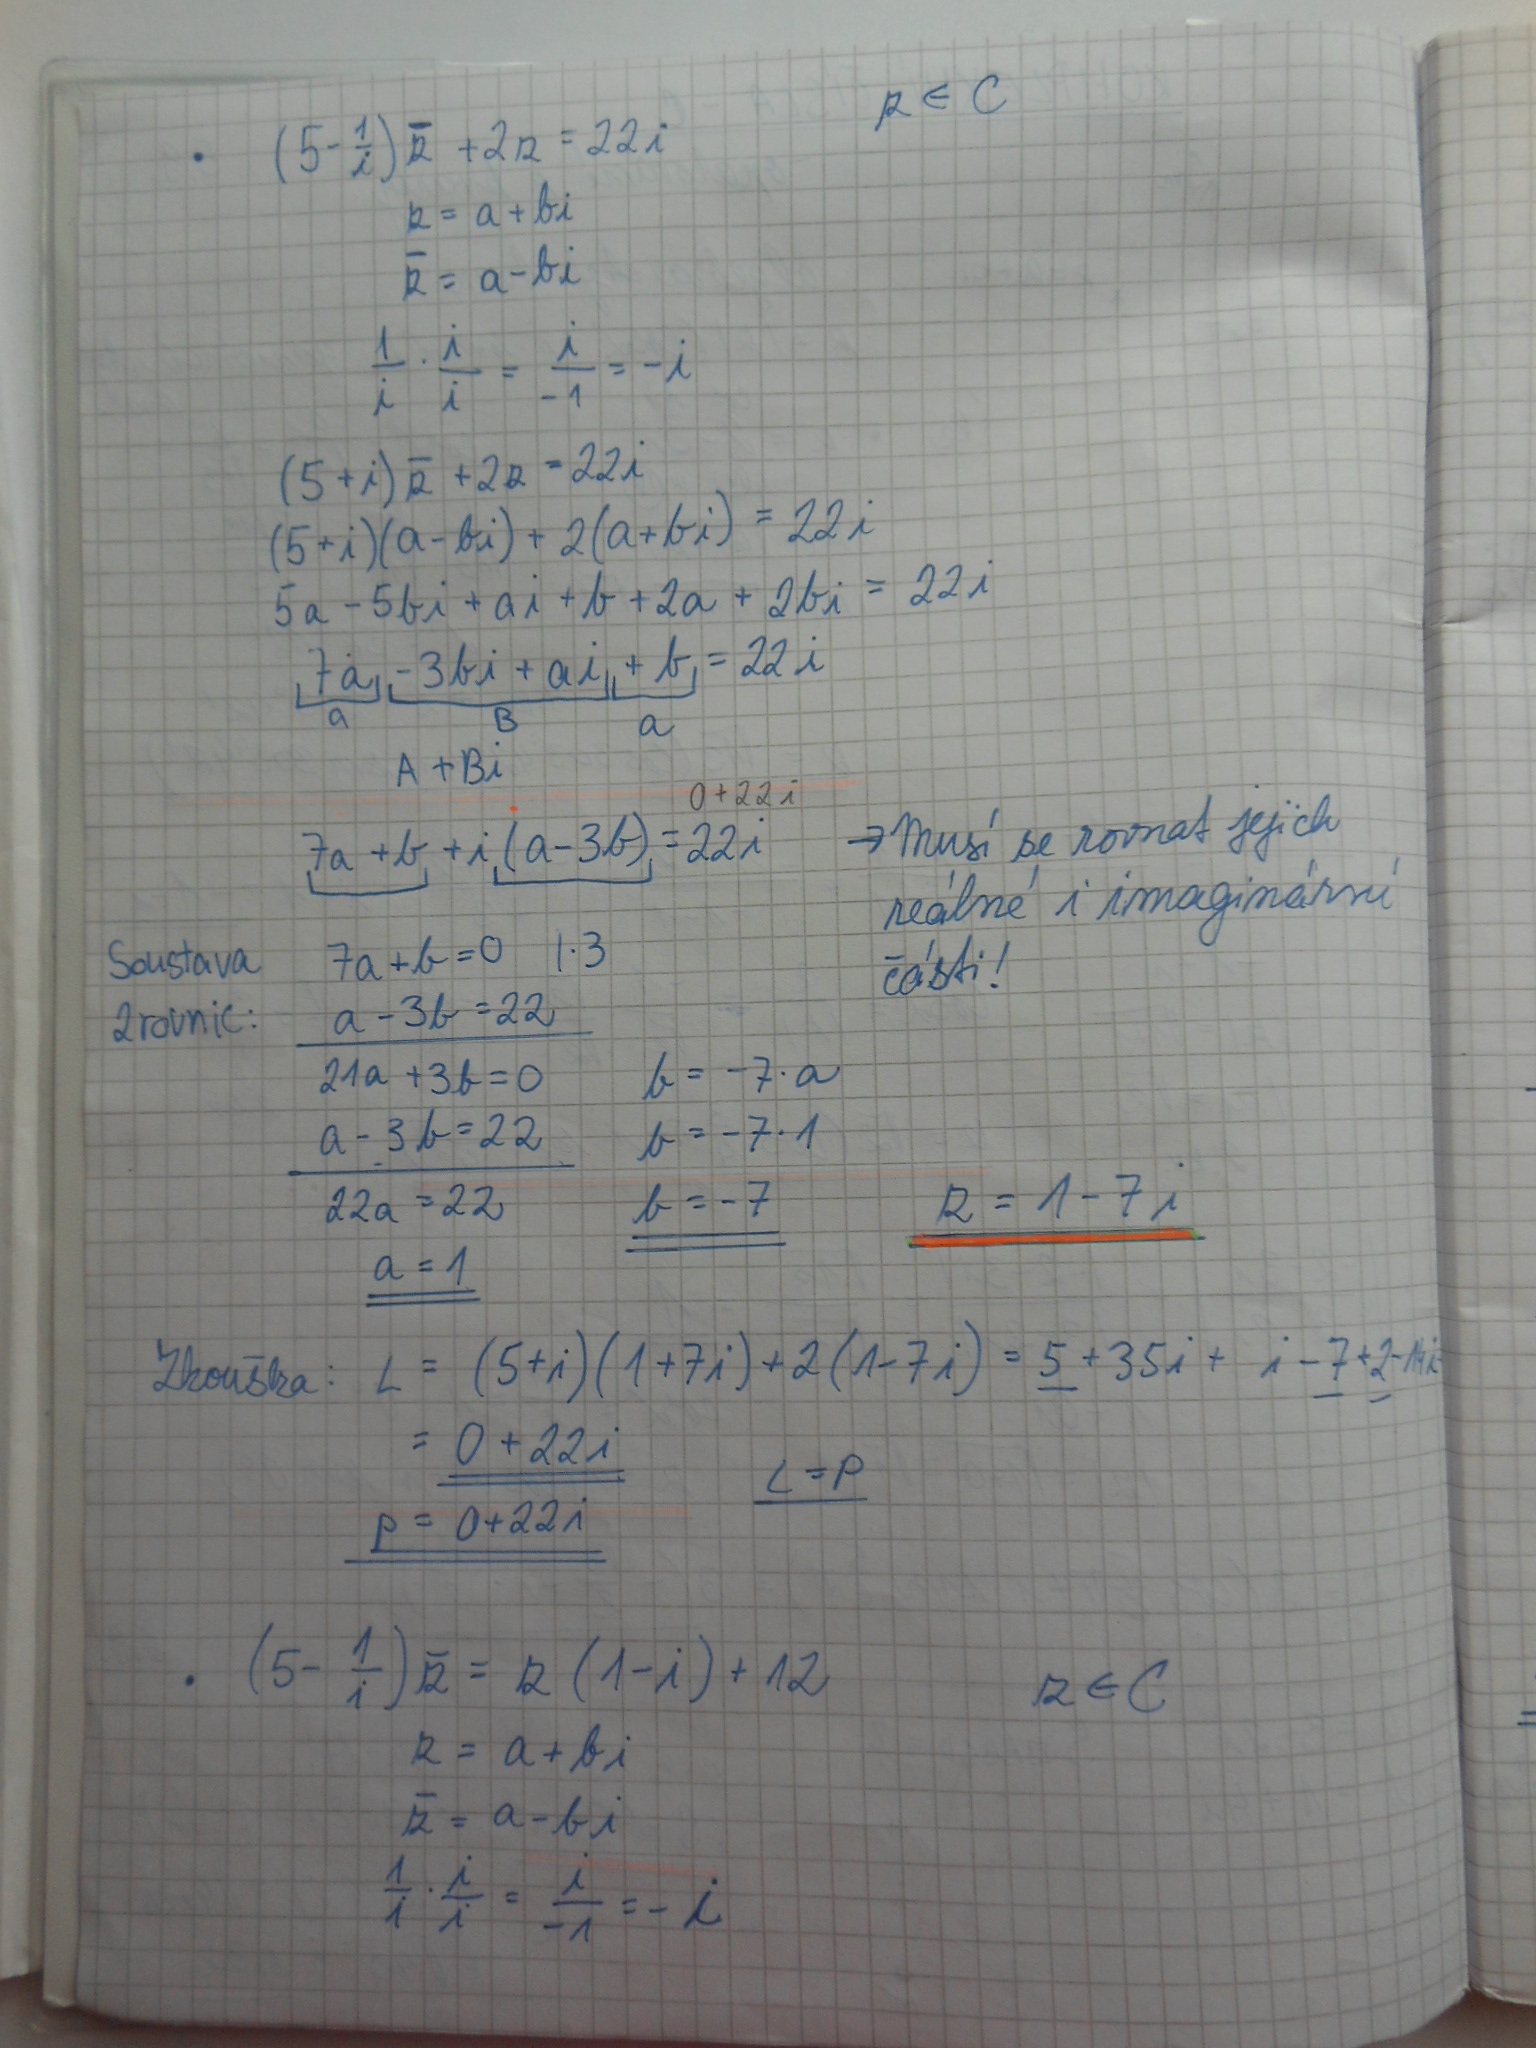 z ∈ C
• (5 - 1/i) z̄ + 2z = 22i
z = a + bi
z̄ = a - bi
1/i · i/i = i/-1 = -i
(5 + i) z̄ + 2z = 22i
(5 + i)(a - bi) + 2(a + bi) = 22i
5a - 5bi + ai + b + 2a + 2bi = 22i
7a - 3bi + ai + b = 22i
a B a
A + Bi
0 + 22i
7a + b + i (a - 3b) = 22i → Musí se rovnat jejich
reálné i imaginární
části!
Soustava 7a + b = 0 | · 3
2 rovnic: a - 3b = 22
21a + 3b = 0 b = -7 · a
a - 3b = 22 b = -7 · 1
22a = 22 b = -7 z = 1 - 7i
a = 1
Zkouška: L = (5+i)(1+7i) + 2(1-7i) = 5 + 35i + i - 7 + 2 - 14i
= 0 + 22i
L = P
P = 0 + 22i
• (5 - 1/i) z̄ = z (1 - i) + 12 z ∈ C
z = a + bi
z̄ = a - bi
1/i · i/i = i/-1 = -i